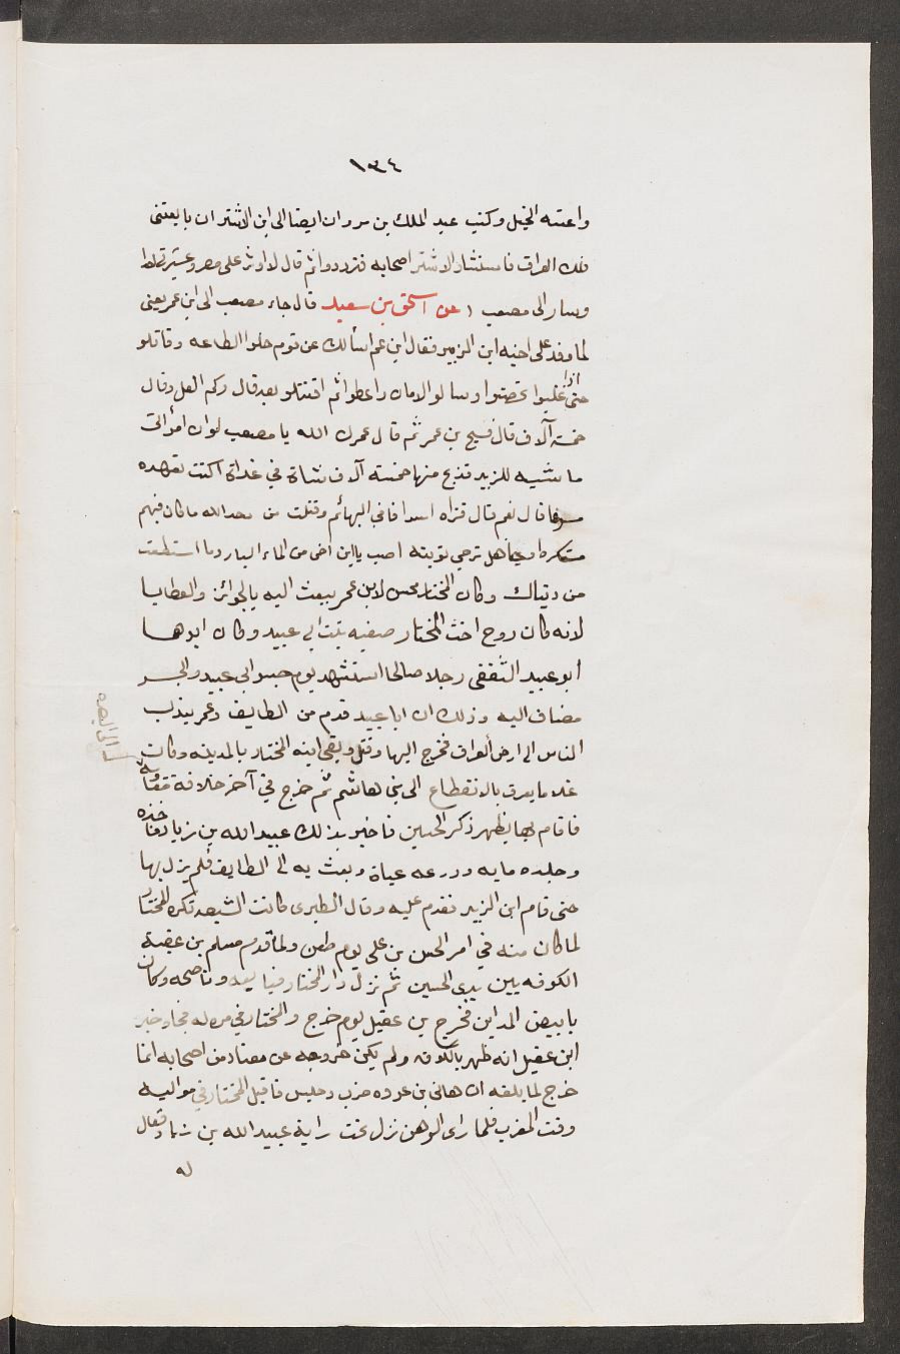 ١٣٤
واعنه الخيل وكتب عبد الملك بن مروان ايضا الى ابن الاشتر ان بايعتنى
فلك العراق فاستشار الاشتر اصحابه فترددوا ثم قال لا اوثر على مصر وعشيرتى احدا
وسار الى مصعب عن اسحق بن سعيد قال جاء مصعب الى ابن عمر يعنى
لما وفد على اخيه ابن الزبير فقال ابن عم اسألك عن قوم خلوا الطاعه وقاتلو
حتى اذا غلبوا تحصنوا وسالو الامان واعطوا ثم اقتتلو بعد قال وكم العدد قال
خمسة آلاف قال فسبح بن عمر ثم قال عمرك الله يا مصعب لو ان امرأ اتى
ماشيه للزبير فذبح منها خمسه آلاف شاة في غداة اكنت تعده
مسرفا قال نعم قال فتراه اسرافا في البهائم وقتلت من محد الله ما كان فيهم
مستكره او جاهل ترجى توبته اصب يا ابن اخى من الماء البارد ما استطعت
من دنياك وكان المختار محسن لابن عمر يبعث اليه بالجوائز والعطايا
لانه كان زوج اخت المختار صفيه بنت ابي عبيد وكان ابوها
أبو عبيد الثقفى رجلا صالحا استشهد يوم جسر ابى عبيد والجسر
مضاف اليه وذلك ان ابا عبيد قدم من الطايف وعمر يندب
الناس الى ارض العراق فخرج اليها وقتل وبقى ابنه المختار بالمدينه وكان
غلاما يعرف بالانقطاع الى بني هاشم ثم خرج في آخر خلافة معاوية
الى البصره
فاقام بها يظهر ذكر الحسين فاخبر بذلك عبيد الله بن زياد فاخذه
وجلده مايه ودرعه عباة وبعث به الى الطايف فلم يزل بها
حتى قام ابن الزبير فقدم عليه وقال الطبرى كانت الشيعه تكره المختار
لما كان منه في امر الحسن بن على يوم طعن ولما قدم مسلم بن عقبة
الكوفه بين يدى الحسين ثم نزل دار المختار فبايعه وناصحه وكان
بابيض المداين فخرج بن عقيل يوم خرج والمختار في فجاء خبر
ابن عقيل انه ظهر بالكوفه ولم يكن خروجه عن معتاد من اصحابه انما
خرج لما بلغه ان هانى بن عروه ضرب وحبس فاقبل المختار في مواليه
وقت المغرب فلما راى الوهن نزل تحت راية عبيد الله بن زياد فقال
له